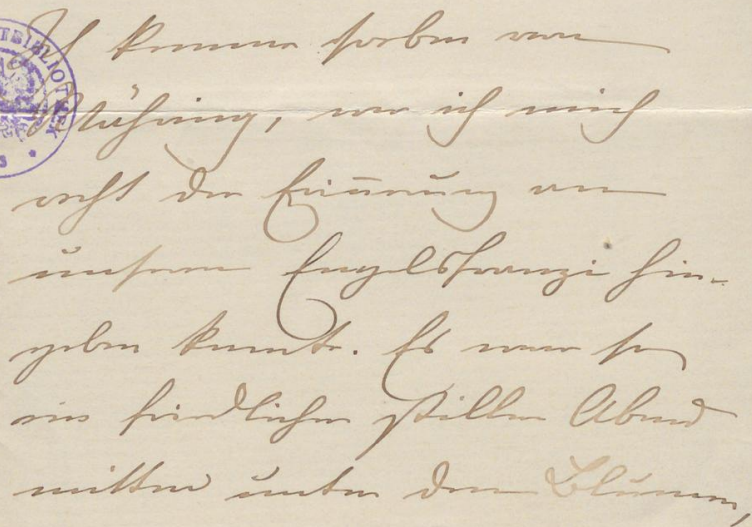 Ich komme soeben von
Mühring, wo ich mich
recht der Erinnerung an
unseren Engelsfranzi hin-
geben konnte. Es war so
ein friedlicher stiller Abend
mitten unter den Blumen,